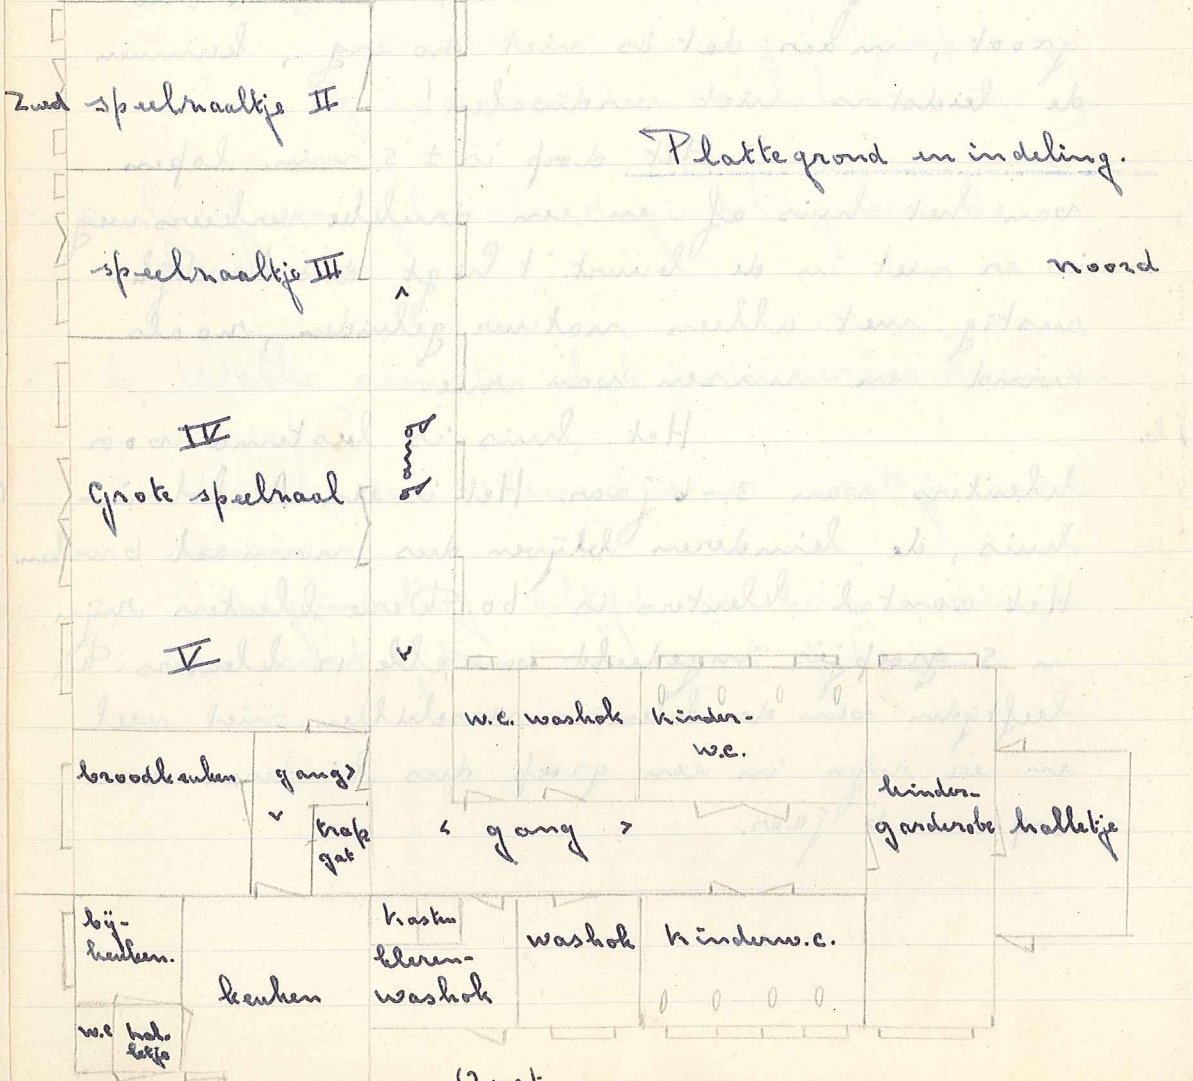 Zuid speelzaaltje II
Plattegrond en indeling.
speelzaaltje III
noord
^
IV
Grote speelzaal
gang
V
v
w.c. washok kinder-
w.c.
broodkeuken gang >
v
trap
gat
< gang >
kinder-
garderobe halletje
bij-
keuken.
kasten
kleren-
washok
washok kinderw.c.
keuken
w.c hal-
letje